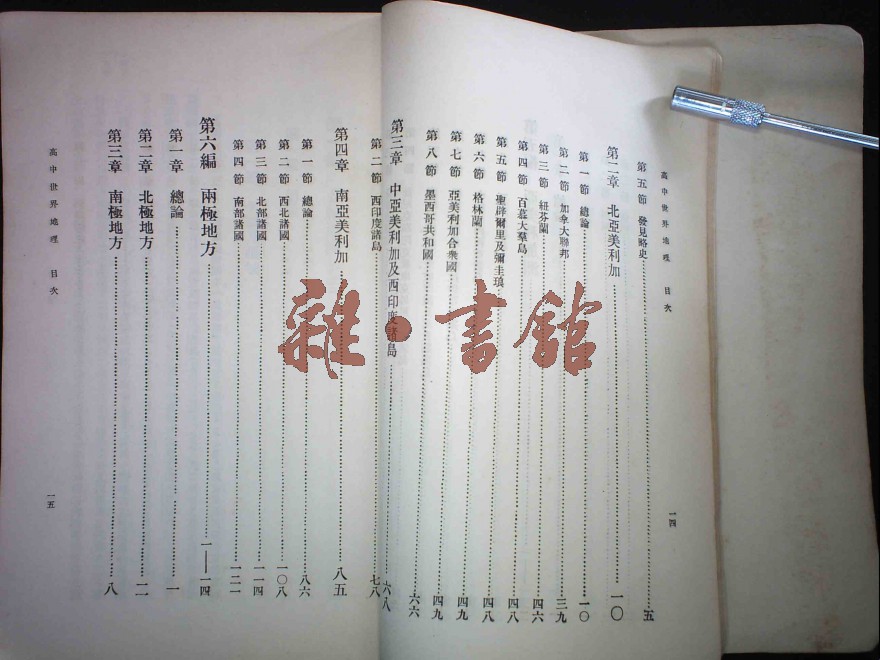 高中世界地理 目次
第五節 發見略史 五
第二章 北亞美利加 一〇
第一節 總論 一〇
第二節 加拿大聯邦 三九
第三節 紐芬蘭 四六
第四節 百慕大羣島 四八
第五節 聖詳爾里及彌圭瑯 四八
第六節 格林蘭 四九
第七節 亞美利加合衆國 四九
第八節 墨西哥共和國 六六
第三章 中亞美利加及西印度諸島 六八
一四
第二節 西印度諸島 七八
第四章 南亞美利加 八五
第一節 總論 八六
第二節 西北諸國 一〇八
第三節 北部諸國 一一四
第四節 南部諸國 一二一
第六編 兩極地方 一——一四
第一章 總論 一
第二章 北極地方 二
第三章 南極地方 八
高中世界地理 目次
一五
雜·書館